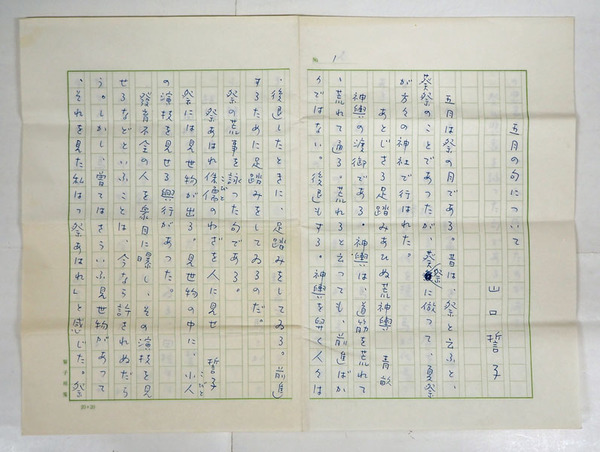 No. 1
五月の句について
山口誓子
五月は祭の月である。昔は、祭と云ふと、
葵祭のことであつたが、葵祭に倣つて、夏祭
が方々の神社で行はれた。
あとじさる足踏みあひぬ荒神輿 青畝
神輿の渡御である。神輿は、道筋を荒れて
、荒れて通る。荒れると云つても、前進ばか
りではない。後退もする。神輿を舁く人々は
、後退したときに、足踏みをしてゐる。前進
するために足踏みをしてゐるのだ。
祭の荒事を詠つた句である。
祭あはれ侏儒のわざを人に見せ 誓子
こびと
祭には見世物が出る。見世物の中に、小人
こびと
の演技を見せる興行があつた。
発育不全の人を衆目に曝し、その演技を見
せるなどといふことは、今なら許されぬだら
う。しかし、曽てはさういふ見世物があつて
、それを見た私はつ祭あはれ」と感じた。祭
20×20